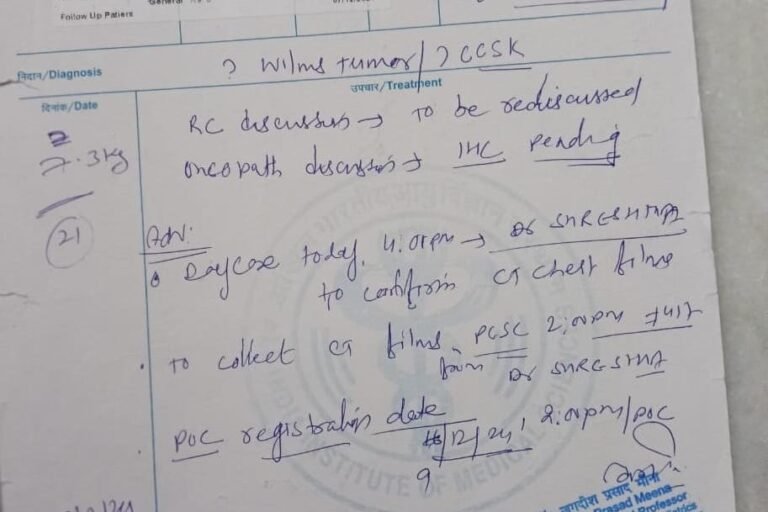 Follow Up Patient
General
निदान/Diagnosis
? Wilms tumor/ ? CCSK
दिनांक/Date
उपचार/Treatment
7.3kg
21
RC discussion → to be rediscussed
oncopath discussion → IHC pending
Adv:
Daycase today, 4:00pm → Dr SHRESHTHA
to confirm CT chest films
to collect CT films PCSC 2:00pm
from Dr SHRESHTHA
POC registration date
9/12/24, 2:00pm/POC
INSTITUTE OF MEDICAL SCIENCES
जगदीश प्रसाद मीना
Prasad Meena
Professor